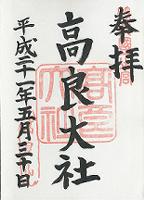 奉拝
高良大社
平成二十一年五月三十日